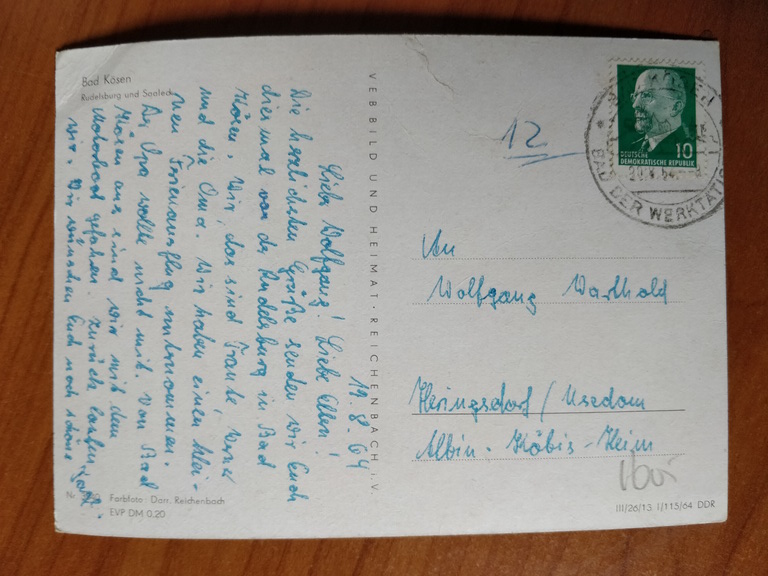 Bad Kösen
Rudelsburg und Saaleck
19.8.64
Liebe Wolfgang! Liebe Ellen!
Die herzlichsten Grüße senden wir Euch
diesmal von der Rudelsburg in Bad
Kösen. Wir, das sind Traute Werner
und die Oma. Wir haben einen klei-
nen Ferienausflug unternommen.
Der Opa wollte nicht mit. Von Bad
Kösen aus sind wir mit dem
Motorboot gefahren. Zurück laufen
wir. Wir wünschen Euch noch schöne
Nr.
Farbfoto: Darr, Reichenbach
EVP DM 0.20
VEB BILD UND HEIMAT · REICHENBACH I. V.
12
DEUTSCHE
DEMOKRATISCHE REPUBLIK
10
BAD DER WERKTÄTIGEN
An
Wolfgang Warthold
Heringsdorf / Usedom
Albin-Köbis-Heim
III/26/13 I/115/64 DDR